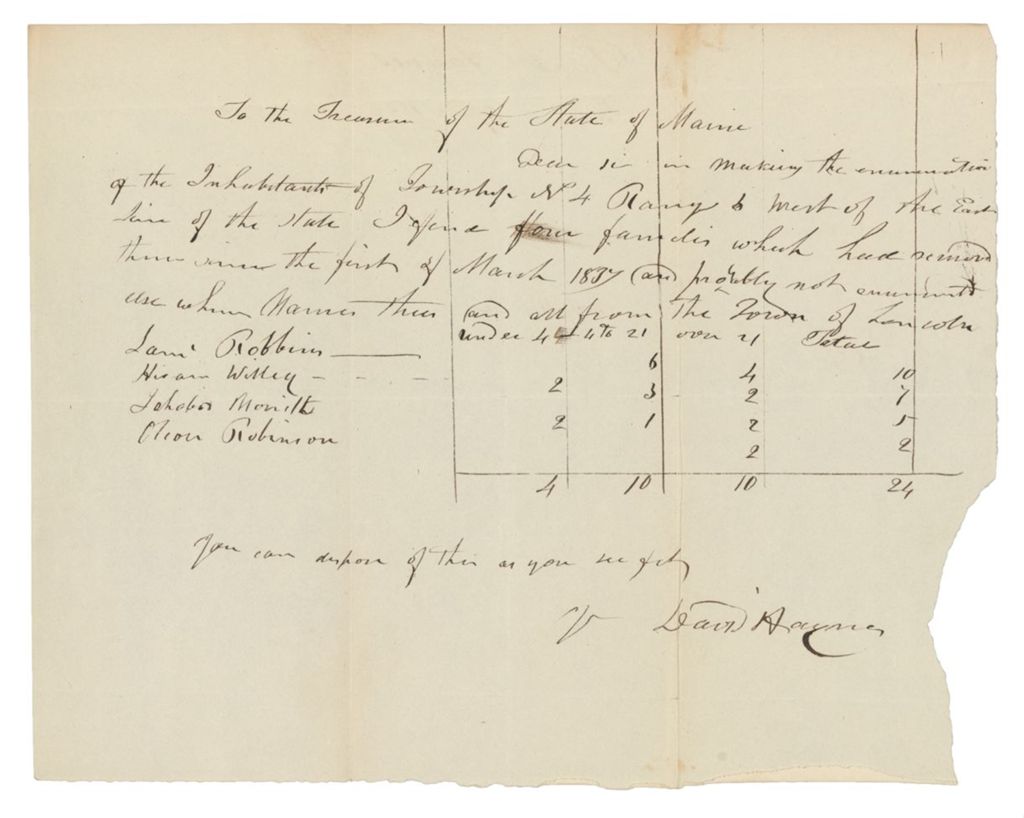 To the Treasurer of the State of Maine
Dear sir in making the enumeration
of the Inhabitants of Township No 4 Rang 6 West of the East
line of the State I find four familis which had removd
there since the first of March 1837 and probbly not enumerated
and all from the Town of Lincoln
under 4 4 to 21 over 21 Total
Robbins 6 4 10
Hiram Willey 2 3 2 7
2 1 2 5
Robinson 2 2
4 10 10 24
you can dispose of this as you see fit
David Haynes